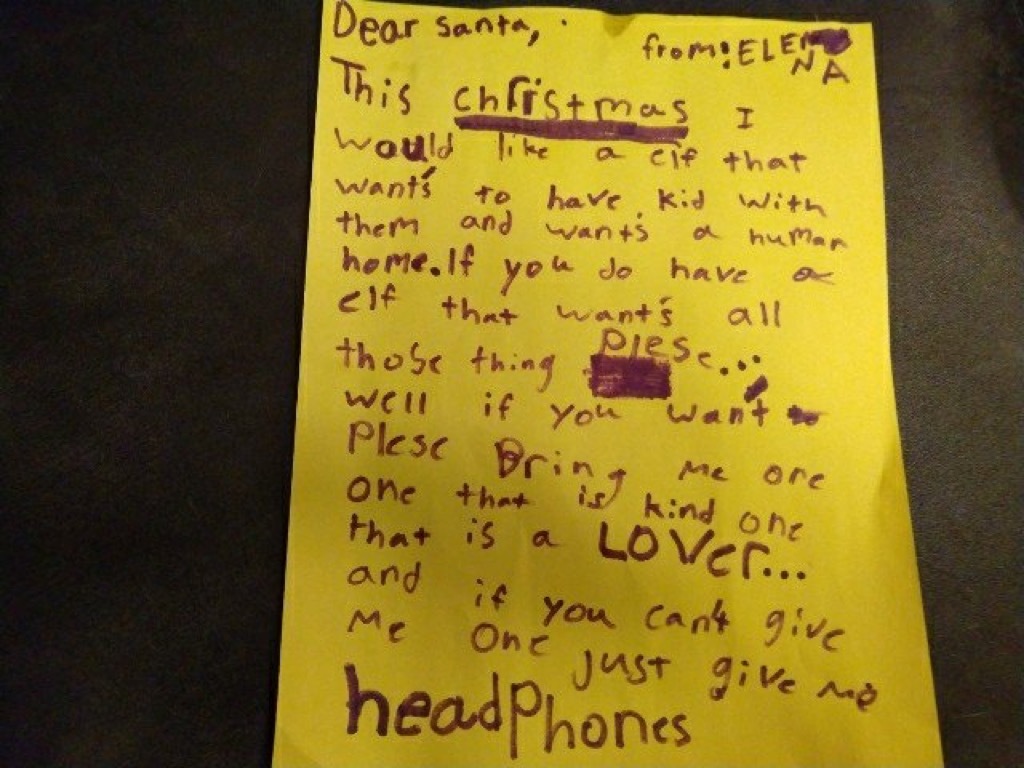 Dear santa,
from: ELENA
This christmas I
would like a elf that
want's to have kid with
them and want's a human
home. If you do have a
elf that want's all
those thing plese...
well if you want
Plese Bring me one
one that is kind one
that is a LOVer...
and if you can't give
me one just give me
headPhones